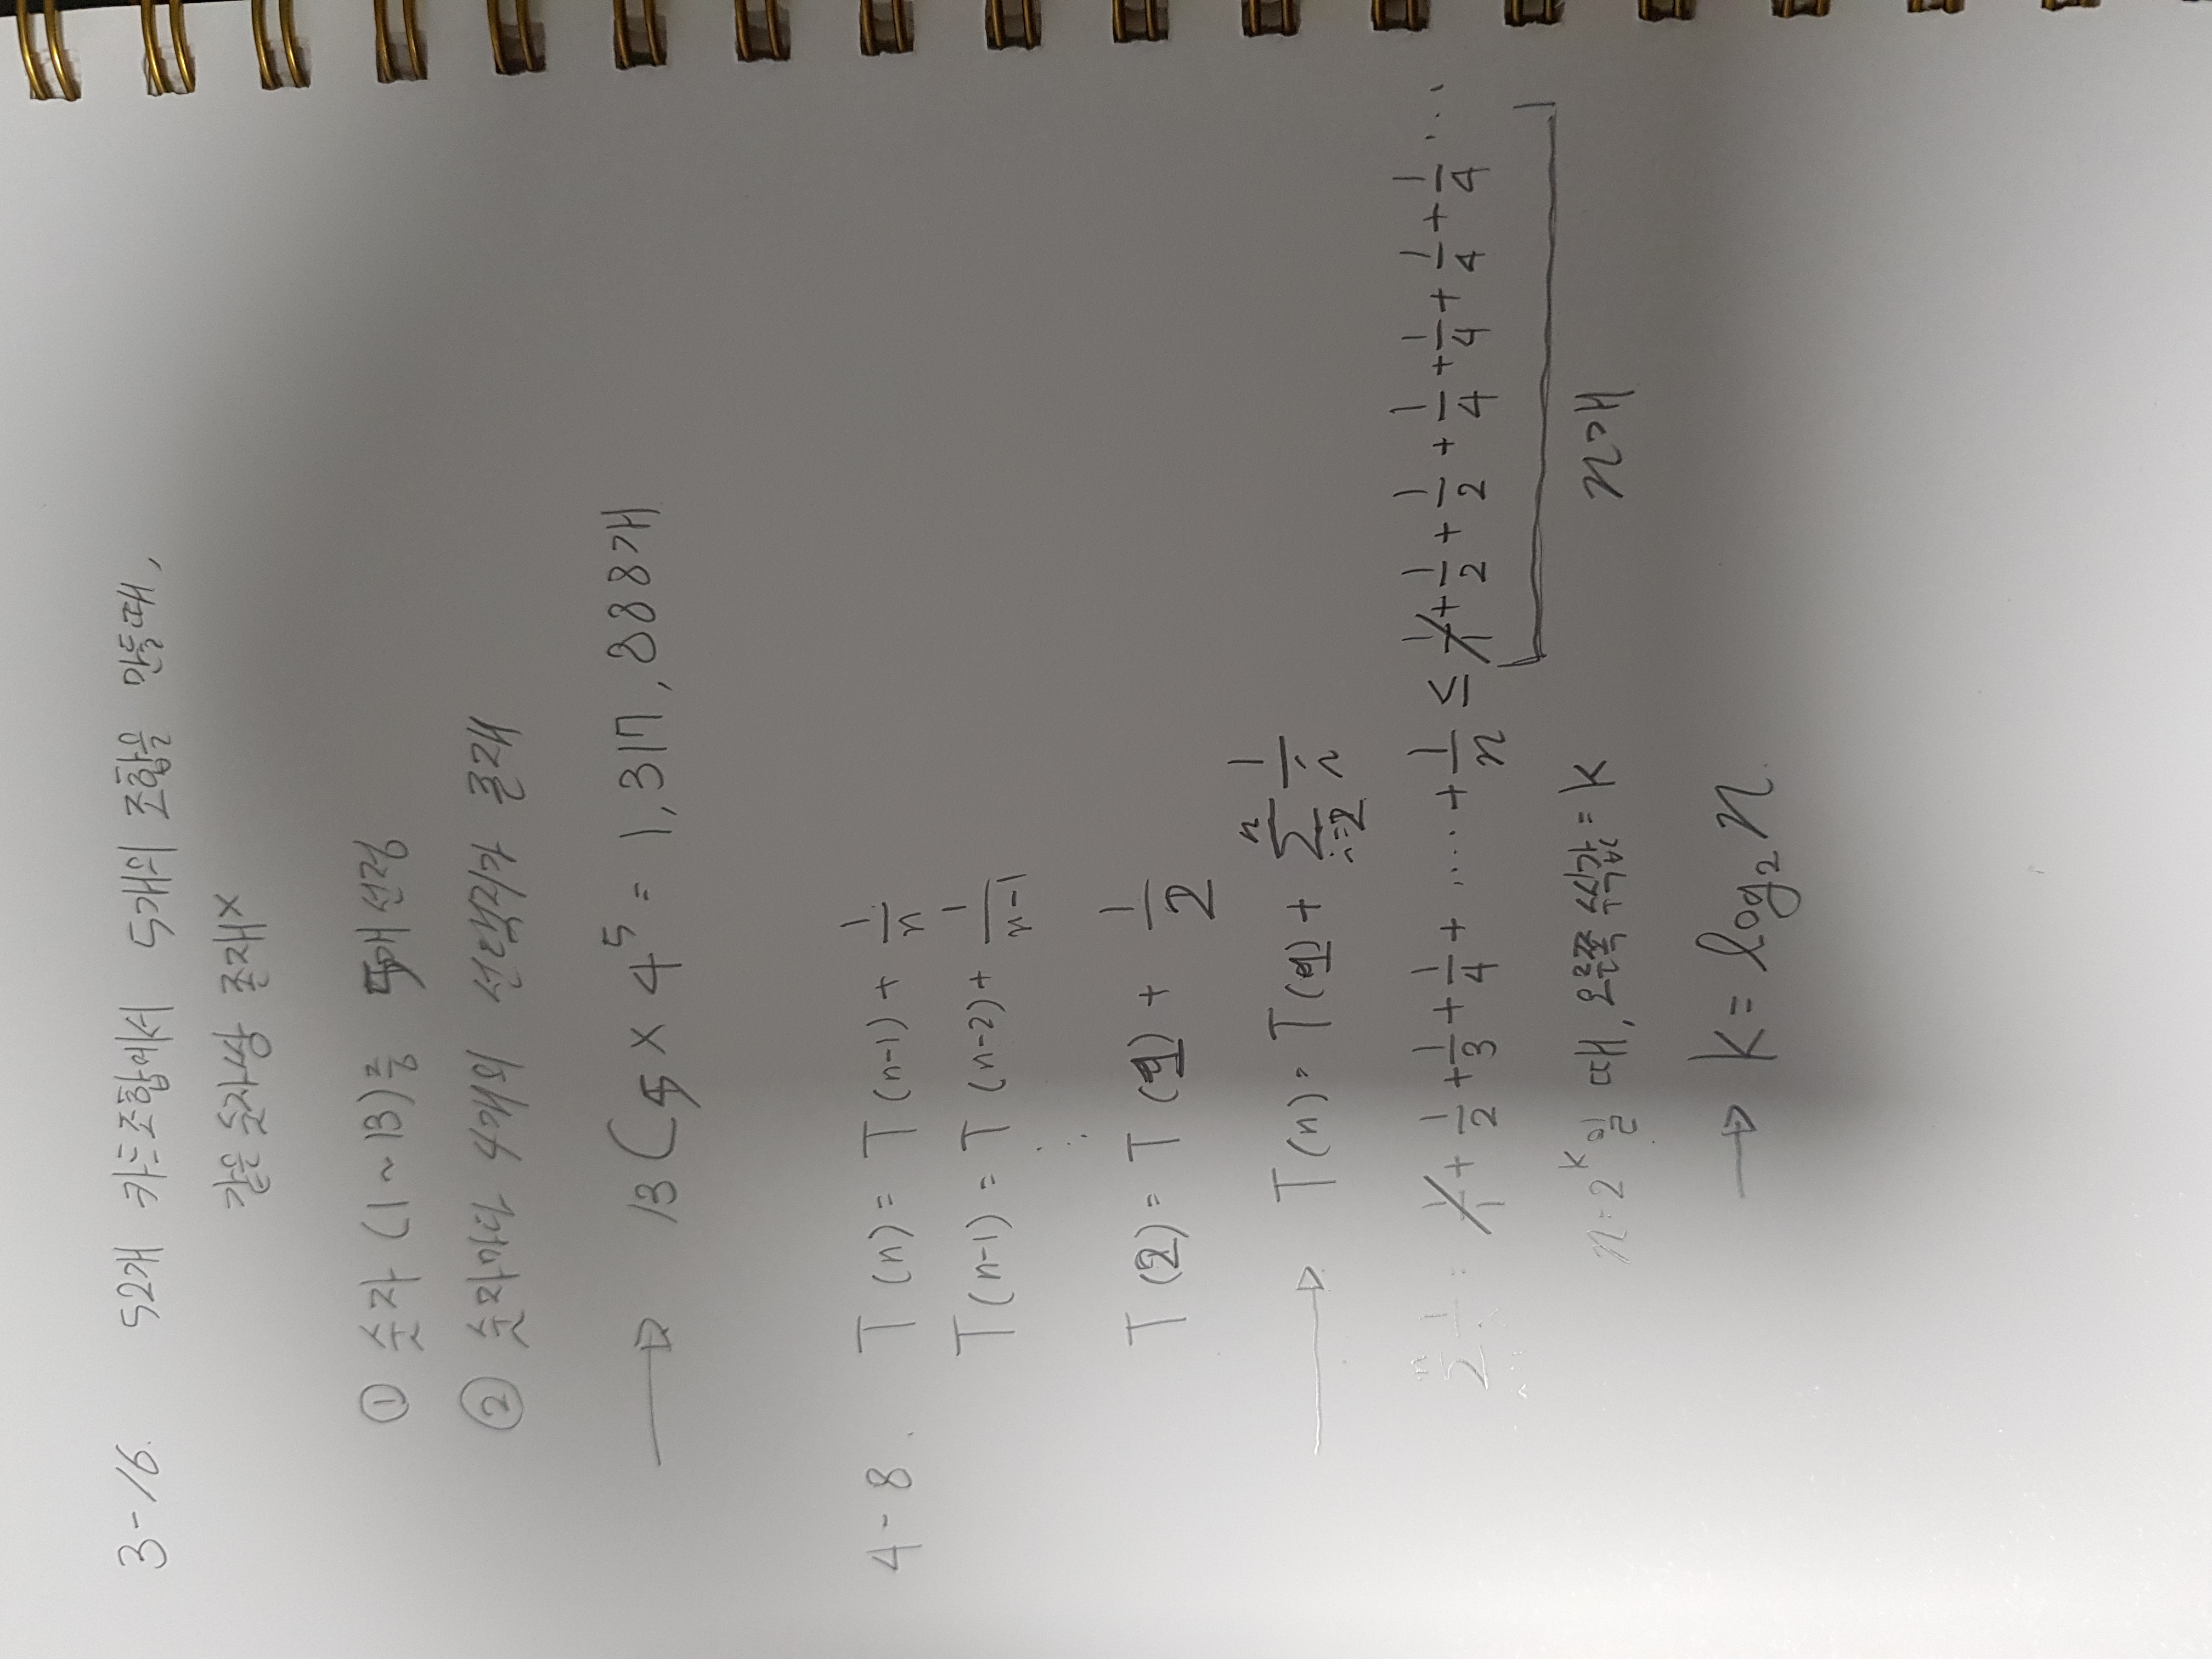 3-16. 52개 카드조합에서 5개의 조합을 만들때,
같은 숫자쌍 존재x
① 숫자 (1~13)중 5개 선정
② 숫자마다 4개의 선택지가 존재
→ 13C5 × 4^5 = 1,317,888개
4-8. T(n) = T(n-1) + 1/n
T(n-1) = T(n-2) + 1/(n-1)
⋮
T(2) = T(1) + 1/2
→ T(n) = T(1) + Σ_{i=2}^{n} 1/i
Σ^{n} 1/ = 1/1 + 1/2 + 1/3 + 1/4 + .... + 1/n ≤ 1/1 + 1/2 + 1/2 + 1/4 + 1/4 + 1/4 + 1/4 ...
n=2^k일 때, 오른쪽 수식값 = k n개
→ k = log₂ n.